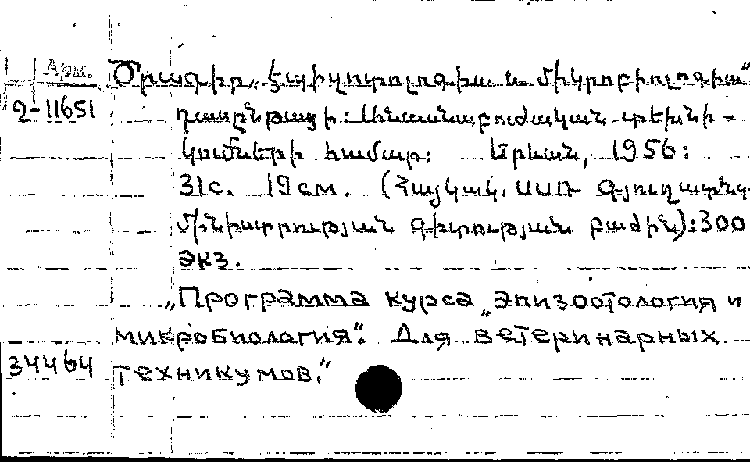 Арм.
Ծրագիր „Էպիզոոտոլոգիա և միկրոբիոլոգիա"
2-11651
դասընթացի: Անասնաբուժական տեխնի-
կումների համար: Երևան, 1956:
31с. 19см. (Հայկակ. ՍՍՌ Գյուղատնտ
մինիստրության գիտության բաժին): 300
экз.
„Программа курса „Эпизоотология и
микробиология". Для ветеринарных
34464
техникумов."